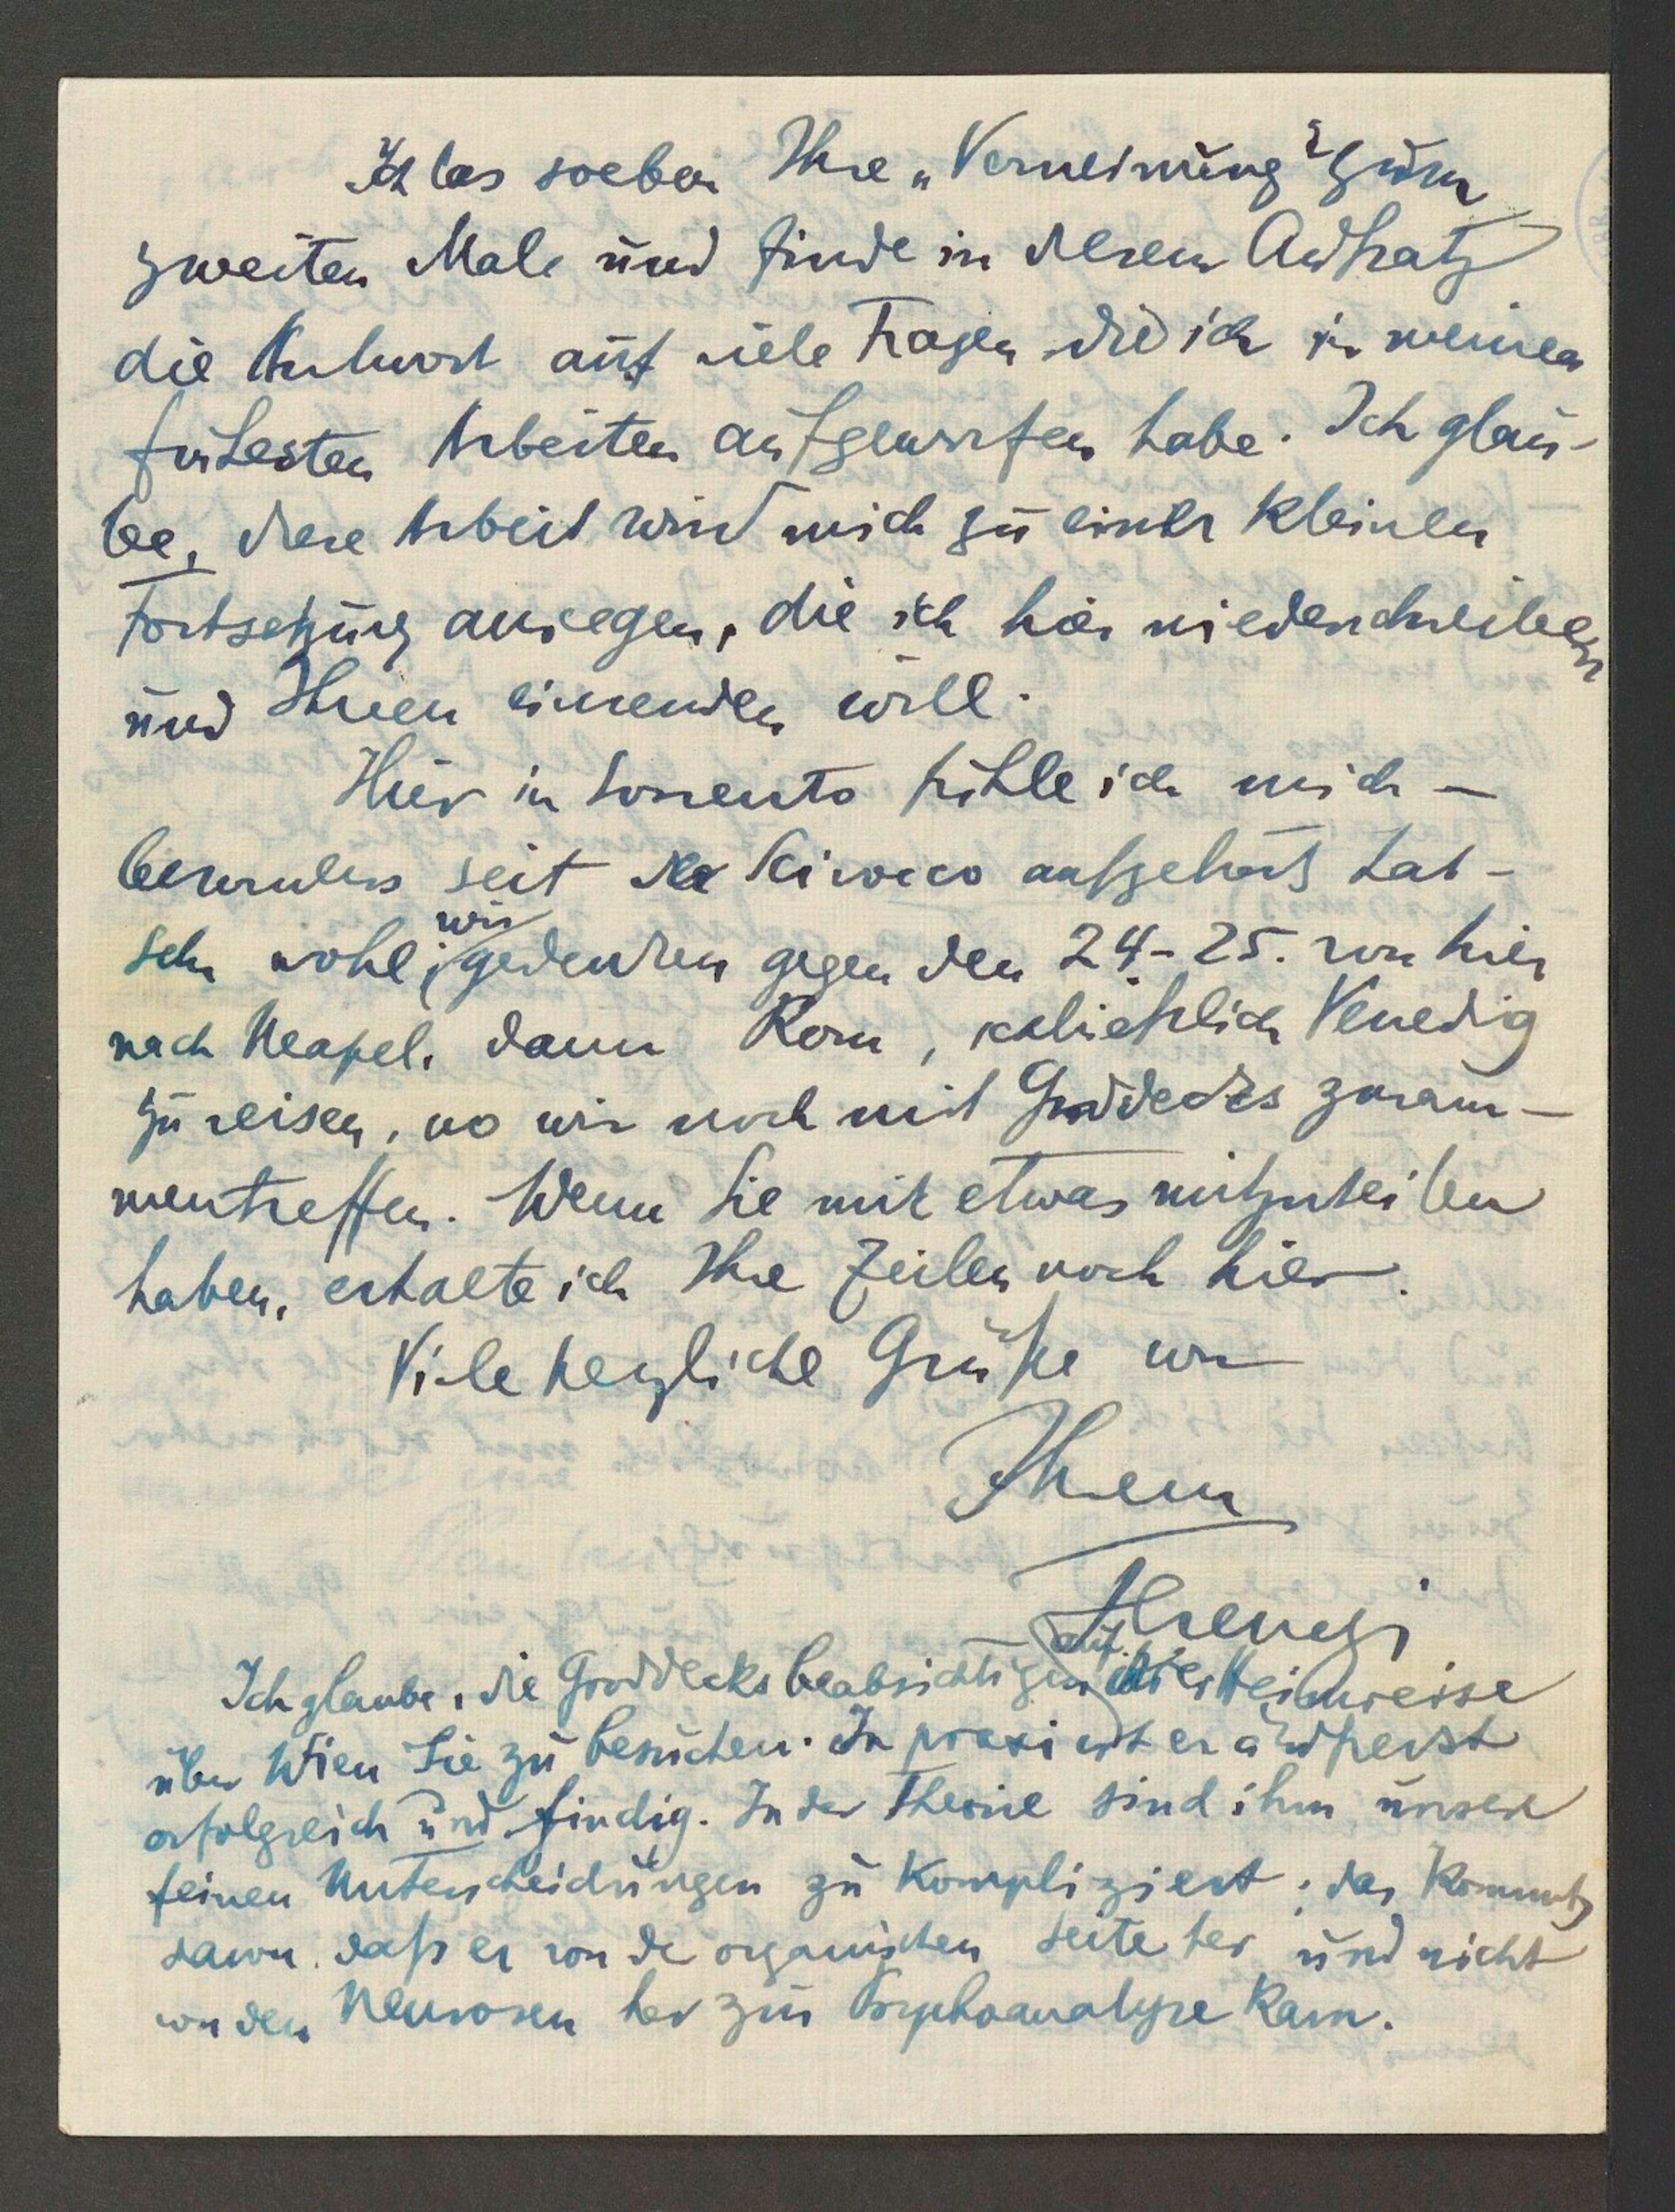 Ich las soeben Ihre „Verneinung“ zum
zweiten Male und finde in diesem Aufsatz
die Antwort auf viele Fragen die ich in meinen
frühesten Arbeiten aufgeworfen habe. Ich glau-
be, diese Arbeit wird mich zu einer kleinen
Fortsetzung anregen, die ich hier niederschreiben
und Ihnen einsenden will.
Hier in Sorrento fühle ich mich –
besonders seit der Scirocco aufgehört hat –
sehr wohl; wir gedenken gegen den 24.-25. von hier
nach Neapel, dann Rom, schließlich Venedig
zu reisen, wo wir noch mit Groddecks zusam-
mentreffen. Wenn Sie mir etwas mitzuteilen
haben, erhalte ich Ihre Zeilen noch hier.
Viele herzliche Grüße von
Ihrem
Ferenczi
Ich glaube, die Groddecks beabsichtigen auf der Heimreise
über Wien Sie zu besuchen. In praxi ist er äußerst
erfolgreich und findig. In der Theorie sind ihm unsere
feinen Unterscheidungen zu kompliziert; das kommt
davon, daß er von der organischen Seite her und nicht
von den Neurosen her zur Psychoanalyse kam.